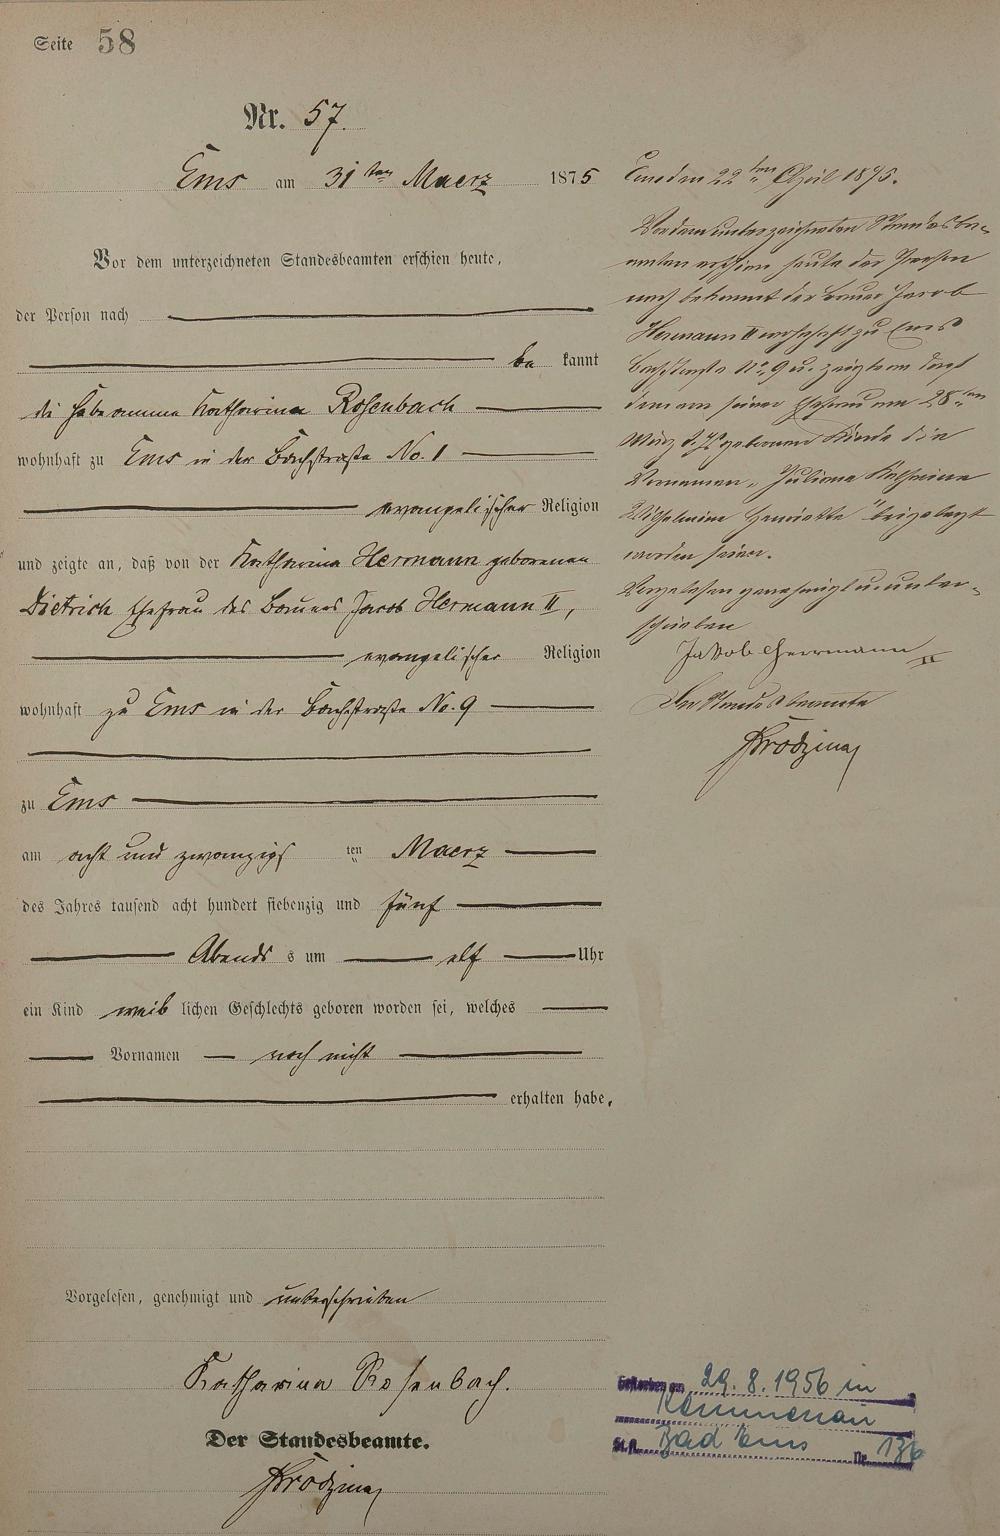 Seite 58
Nr. 57.
Ems am 31ten Maerz 1875
Vor dem unterzeichneten Standesbeamten erschien heute,
der Person nach
be kannt
die Hebamme Katharina Rosenbach
wohnhaft zu Ems in der Bachstraße No. 1
evangelischer Religion
und zeigte an, daß von der Katharina Hermann geborenen
Dietrich Ehefrau des Bauers Jacob Hermann II,
evangelischer Religion
wohnhaft zu Ems in der Bachstraße No. 9
zu Ems
am acht und zwanzigs ten Maerz
des Jahres tausend acht hundert siebenzig und fünf
Abends s um elf Uhr
ein Kind weib lichen Geschlechts geboren worden sei, welches
Vornamen noch nicht
erhalten habe.
Vorgelesen, genehmigt und unterschrieben
Katharina Rosenbach.
Der Standesbeamte.
Ems den 22ten April 1875.
Vor dem unterzeichneten Standesbe-
amten erschien heute der Person
nach bekannt der Bauer Jacob
Hermann II wohnhaft zu Ems
Bachstraße No. 9 u. zeigte an daß
dem von seiner Ehefrau am 28ten
März d. Js geborenen Kinde die
Vornamen "Juliane Katharina
Wilhelmine Henriette" beigelegt
worden seien.
Vorgelesen genehmigt u. unter-
schrieben
Jakob Herrmann II
Der Standesbeamte
Gestorben am 29.8.1956 in
Kemmenau
St.A. Bad Ems Nr. 136